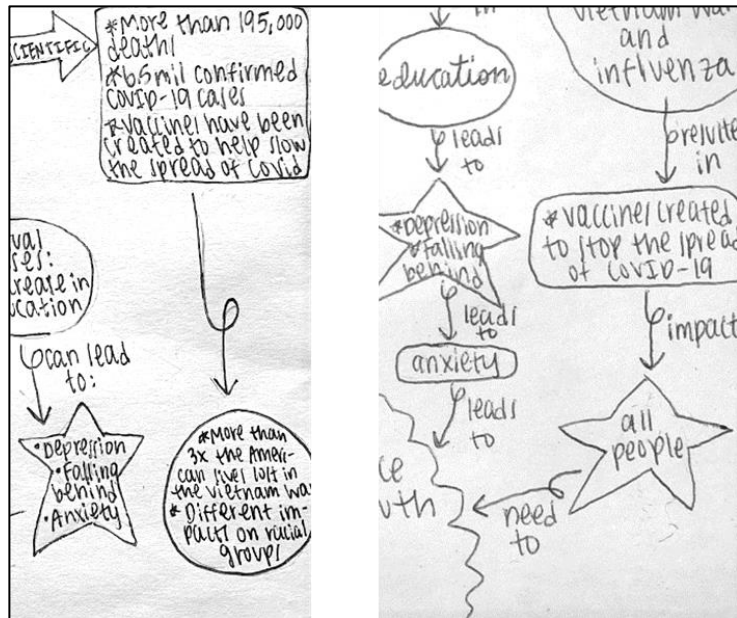 SCIENTIFIC
*More than 195,000
deaths
*65mil confirmed
COVID-19 cases
*vaccines have been
created to help slow
the spread of Covid
can lead
to:
•Depression
•Falling
behind
•Anxiety
*More than
3x the Ameri-
can lives lost in
the Vietnam Wa
* Different im-
pacts on racial
groups
in
education
leads
to
*Depression
*Falling
behind
leads
to
anxiety
leads
to
and
influenza
in
*vaccines created
to stop the spread
of COVID-19
impact
all
people
need
to